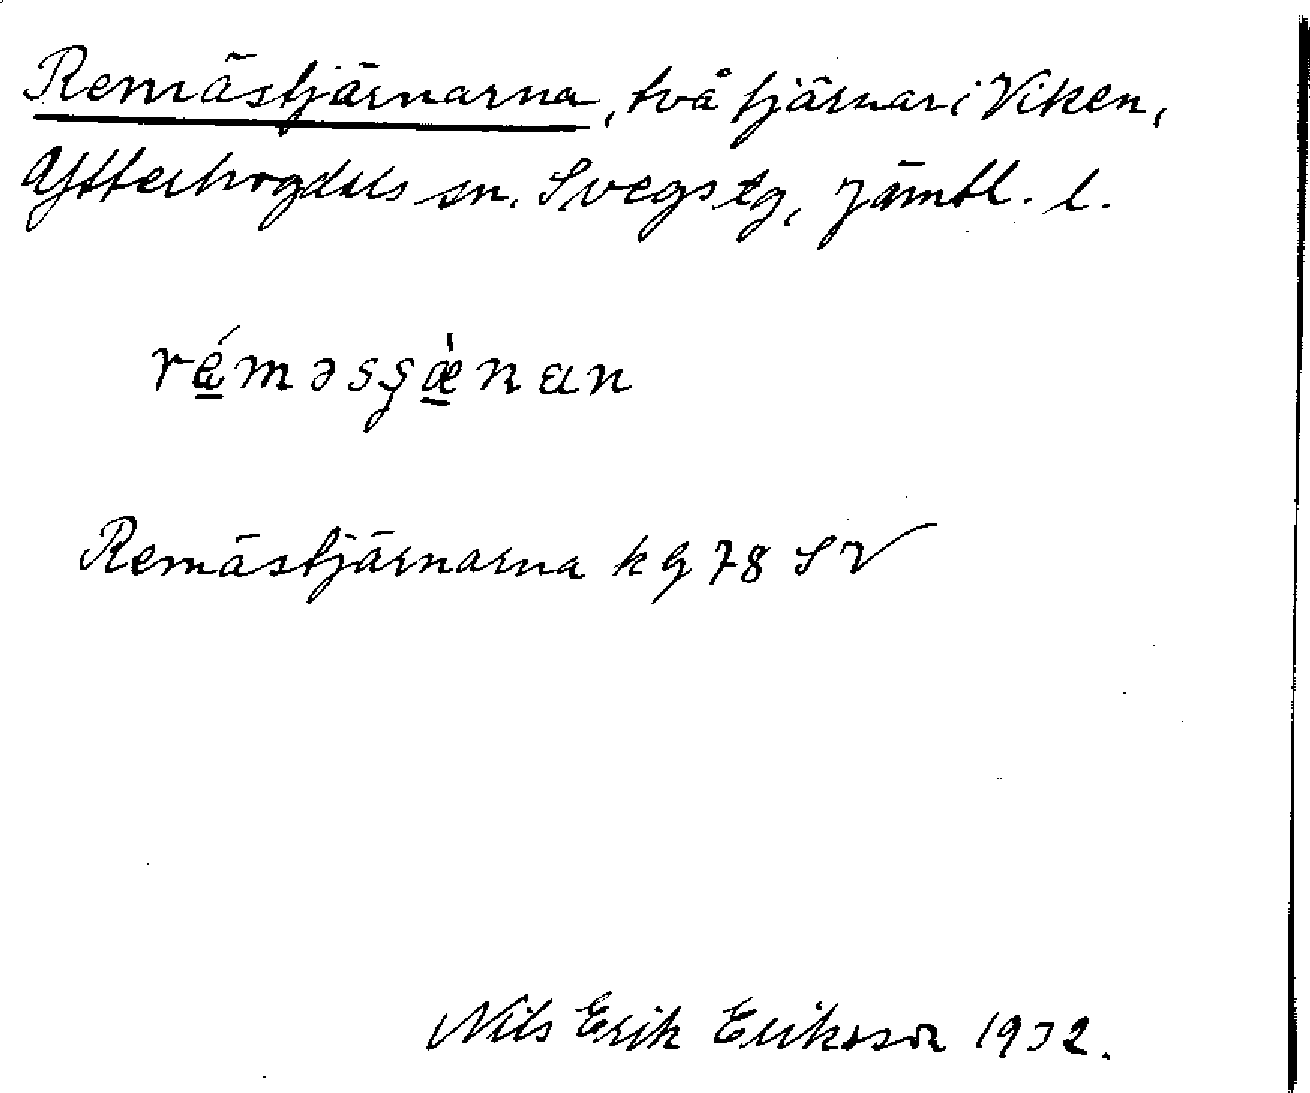 Remästjärnarna, två tjärnar i Viken,
Ytterhogdals sn. Svegs tg, Jämtl. l.
rǽməsşæ̀nan
Remästjärnarna kg 78 SV
Nils Erik Eriksson 1932.